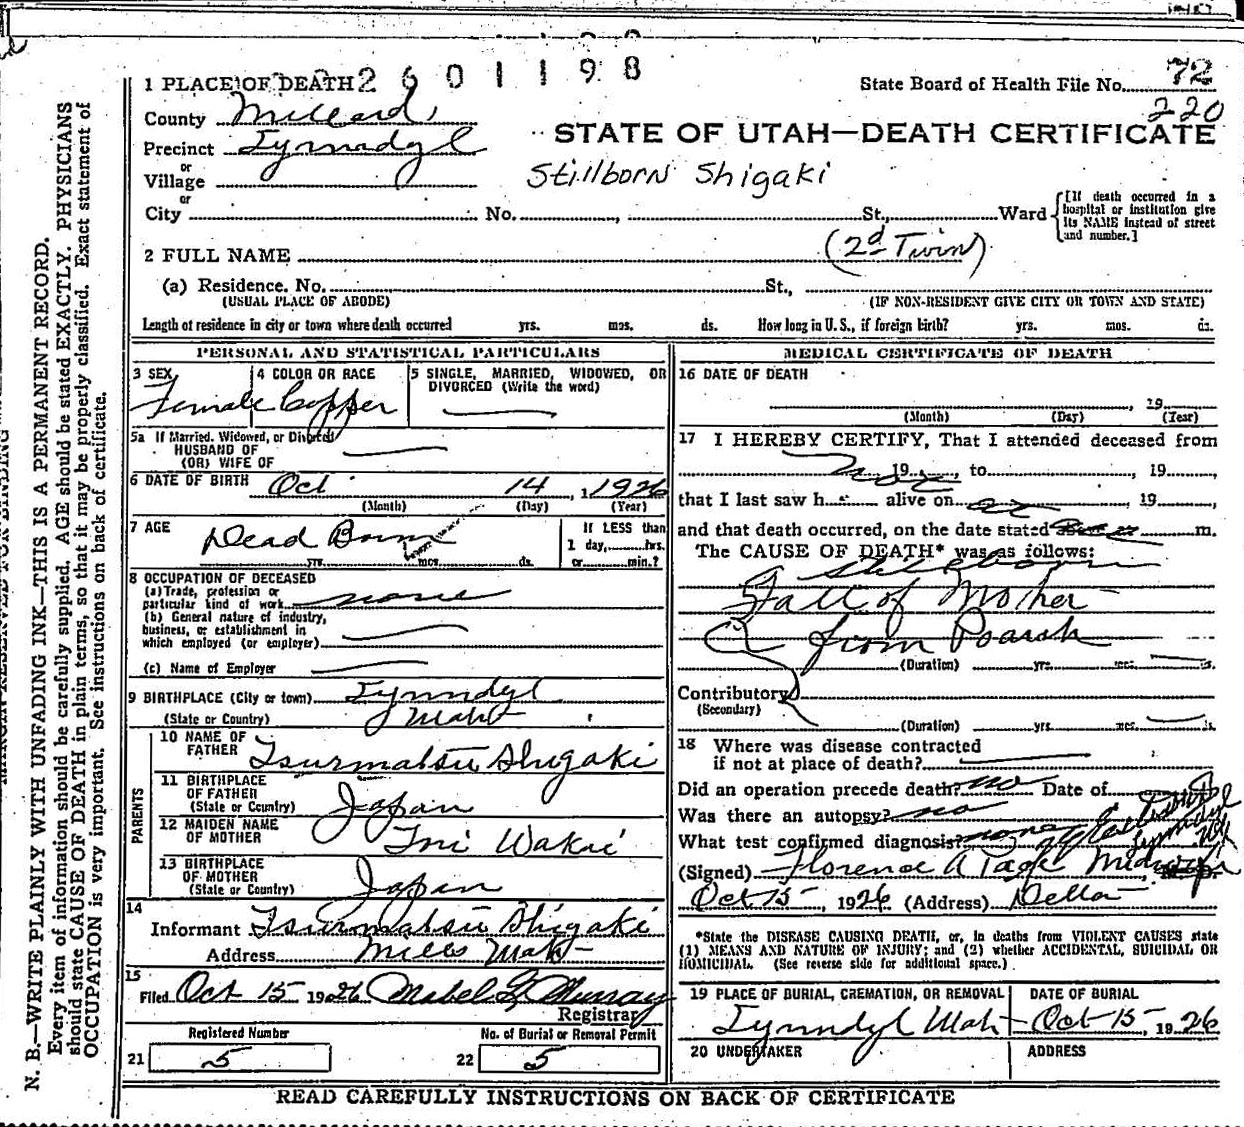 1 PLACE OF DEATH 2601198
State Board of Health File No. 72
220
County Millard
STATE OF UTAH—DEATH CERTIFICATE
Precinct Lynndyl
or
Village
Stillborn Shigaki
or
City No. , St., Ward
[If death occurred in a hospital or institution give its NAME instead of street and number.]
2 FULL NAME (2d Twin)
(a) Residence. No. St.,
(USUAL PLACE OF ABODE) (IF NON-RESIDENT GIVE CITY OR TOWN AND STATE)
Length of residence in city or town where death occurred yrs. mos. ds. How long in U. S., if foreign birth? yrs. mos. ds.
PERSONAL AND STATISTICAL PARTICULARS
3 SEX 4 COLOR OR RACE 5 SINGLE, MARRIED, WIDOWED, OR
DIVORCED (Write the word)
Female Copper
5a If Married, Widowed, or Divorced
HUSBAND OF
(OR) WIFE OF
6 DATE OF BIRTH Oct 14, 1926
(Month) (Day) (Year)
7 AGE Dead Born
yrs. mos. ds.
If LESS than
1 day, hrs.
or min.?
8 OCCUPATION OF DECEASED
(a) Trade, profession or
particular kind of work none
(b) General nature of industry,
business, or establishment in
which employed (or employer)
(c) Name of Employer
9 BIRTHPLACE (City or town) Lynndyl
(State or Country) Utah
PARENTS
10 NAME OF
FATHER Tsurmatsu Shigaki
11 BIRTHPLACE
OF FATHER
(State or Country) Japan
12 MAIDEN NAME
OF MOTHER Ini Wakai
13 BIRTHPLACE
OF MOTHER
(State or Country) Japan
14
Informant Tsurmatsu Shigaki
Address Mills Utah
15
Filed Oct 15 1926 Mabel G. Murray
Registrar
Registered Number No. of Burial or Removal Permit
21 5 22 5
MEDICAL CERTIFICATE OF DEATH
16 DATE OF DEATH
, 19
(Month) (Day) (Year)
17 I HEREBY CERTIFY, That I attended deceased from
19 , to , 19 ,
that I last saw h alive on , 19 ,
and that death occurred, on the date stated m.
The CAUSE OF DEATH* was as follows:
Stillborn
Fall of Mother
from Porch
(Duration) yrs. mos. ds.
Contributory
(Secondary)
(Duration) yrs. mos. ds.
18 Where was disease contracted
if not at place of death?
Did an operation precede death? no Date of
Was there an autopsy? no
What test confirmed diagnosis? none
(Signed) Florence A Page Midwife
Oct 15, 1926 (Address) Delta
*State the DISEASE CAUSING DEATH, or, in deaths from VIOLENT CAUSES state
(1) MEANS AND NATURE OF INJURY; and (2) whether ACCIDENTAL, SUICIDAL OR
HOMICIDAL. (See reverse side for additional space.)
19 PLACE OF BURIAL, CREMATION, OR REMOVAL DATE OF BURIAL
Lynndyl Utah Oct 15, 1926
20 UNDERTAKER ADDRESS
READ CAREFULLY INSTRUCTIONS ON BACK OF CERTIFICATE
N. B.—WRITE PLAINLY WITH UNFADING INK—THIS IS A PERMANENT RECORD.
Every item of information should be carefully supplied. AGE should be stated EXACTLY. PHYSICIANS
should state CAUSE OF DEATH in plain terms, so that it may be properly classified. Exact statement of
OCCUPATION is very important. See instructions on back of certificate.